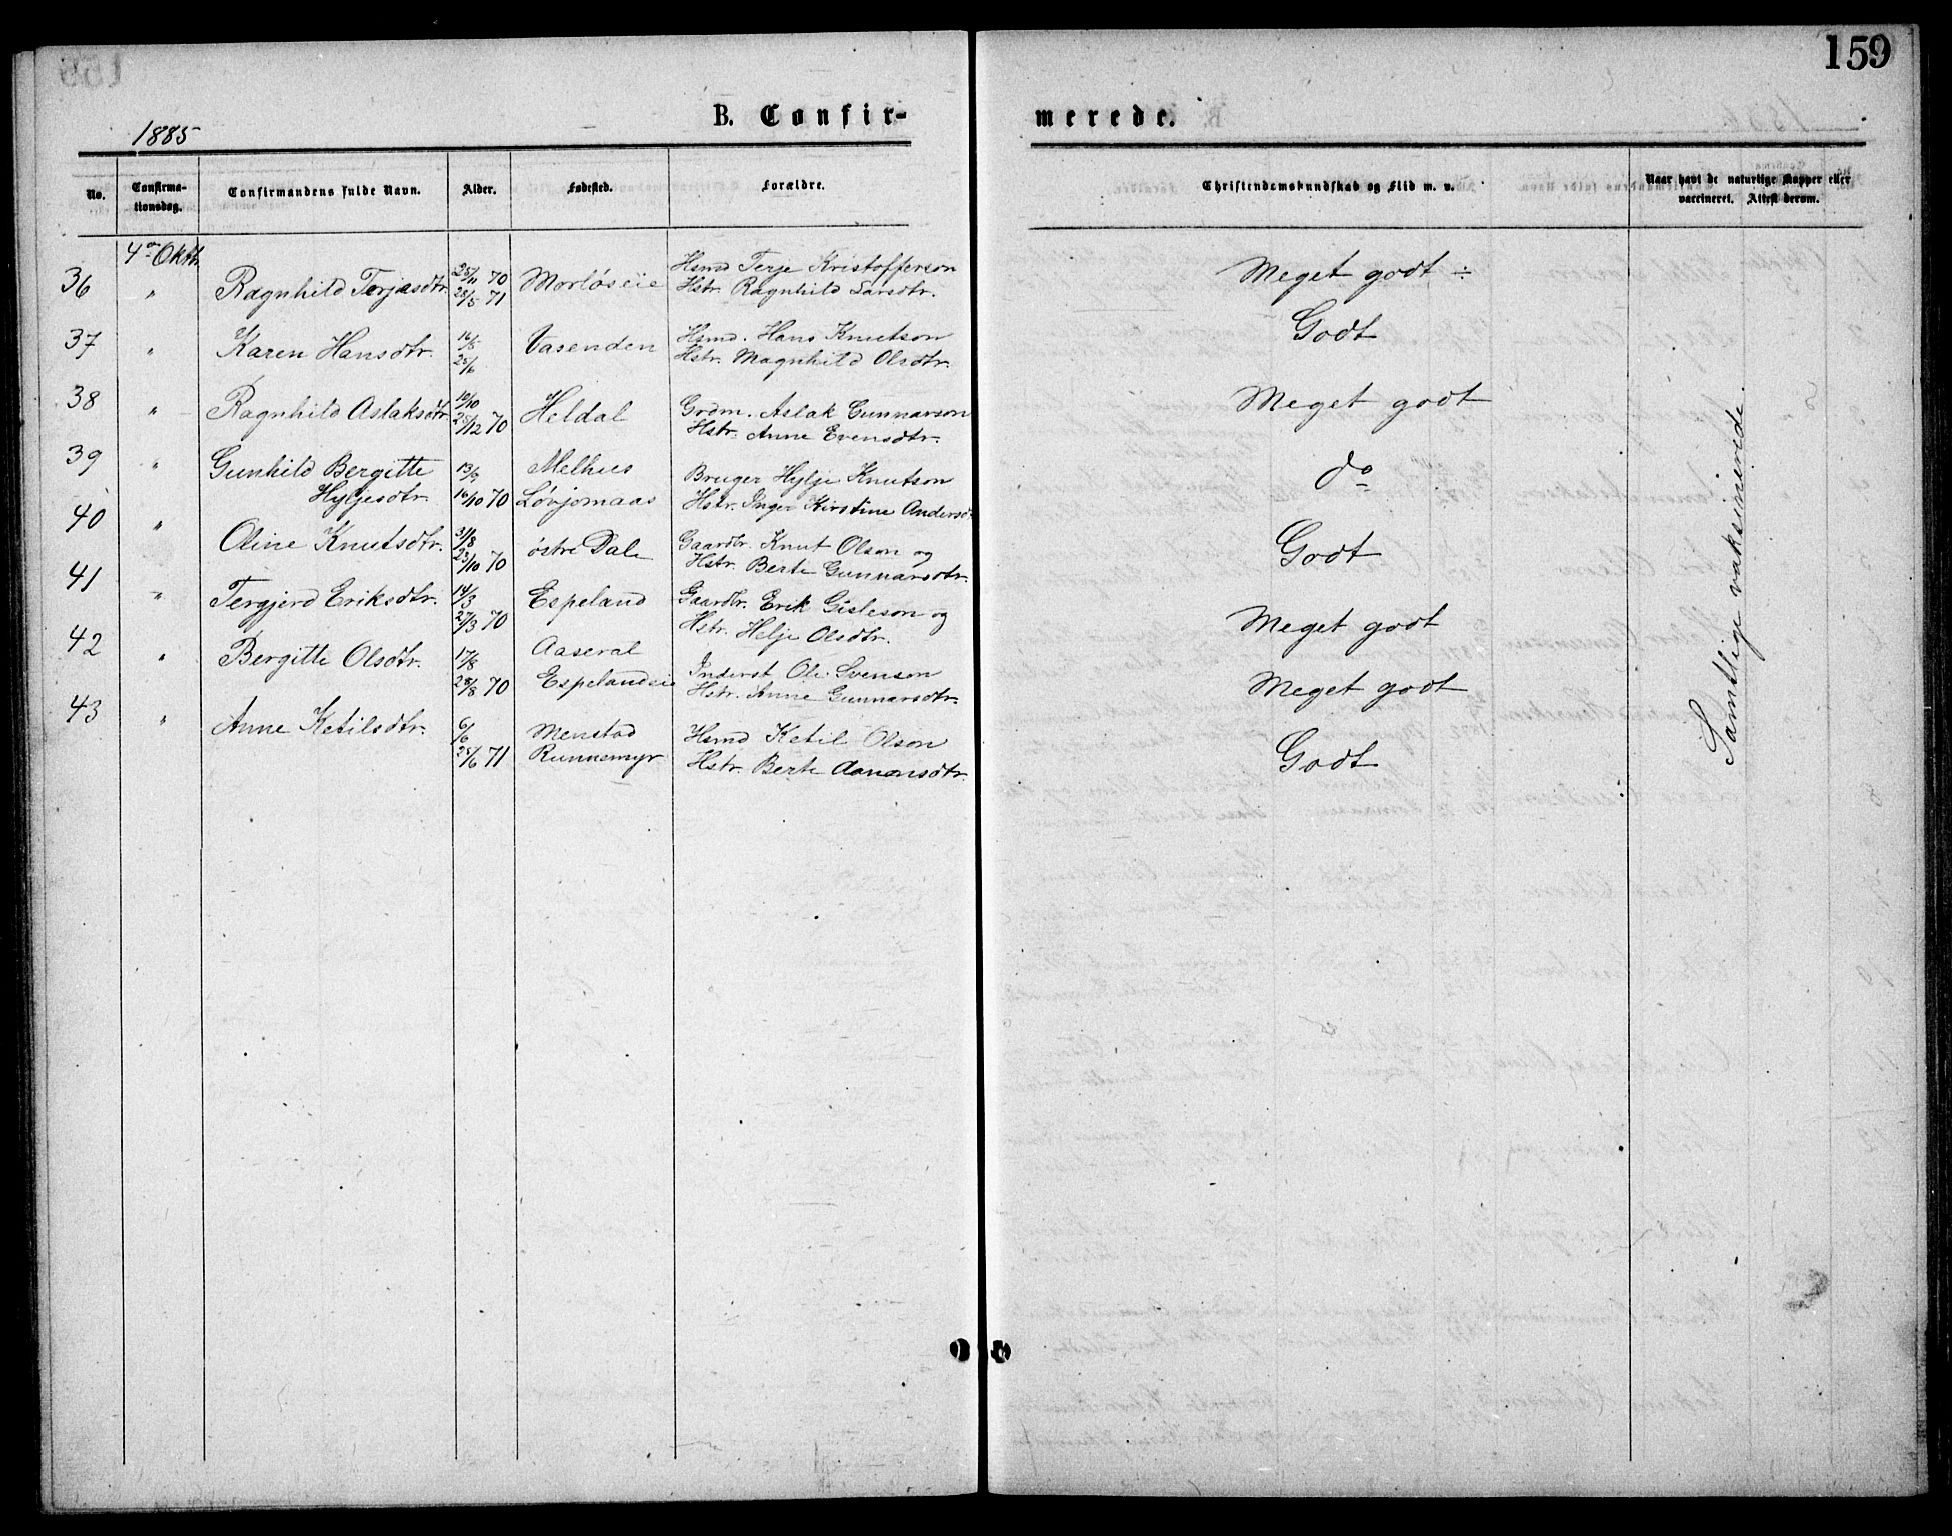 159
B. Confirmerede.
1885
No. Confirmationsdag. Confirmandens fulde Navn. Alder. Fødested. Forældre. Christendomskundskab og Flid m. v. Naar havt de naturlige Kopper eller vaccineret. Attest derom.
4de Oktb.
36 " Ragnhild Terjesdtr. 25/11 70 28/5 71 Morløseie Hsmd Terje Kristofferson Hstr. Ragnhild Larsdtr. Meget godt ÷
37 " Karen Hansdtr. 16/5 25/6 Vasenden Hsmd. Hans Knutson Hstr. Magnhild Olsdtr. Godt
38 " Ragnhild Aslaksdtr. 10/10 25/12 70 Heldal Grdm. Aslak Gunnarson Hstr. Anne Evensdtr. Meget godt
39 " Gunhild Bergitte Hyljesdtr. 13/9 16/10 70 Melhus Løvjomaas Bruger Hylje Knutson Hstr. Inger Kirstine Andersd. do
40 " Oline Knutsdtr. 31/8 23/10 70 østre Dale Gaardbr. Knut Olson og Hstr. Berte Gunnarsdtr. Godt
41 " Tergjerd Eriksdtr. 14/3 27/3 70 Espeland Gaardbr. Erik Gisleson og Hstr. Helje Olsdtr. Meget godt
42 " Bergitte Olsdtr. 17/8 28/8 70 Aaseral Espelandseie Inderst Ole Svenson Hstr. Anne Gunnarsdtr. Meget godt
43 " Anne Ketilsdtr. 6/6 25/6 71 Menstad Runnemyr Hsmd Ketil Olson Hstr. Berte Aanonsdtr. Godt
Samtlige vaksinerede.